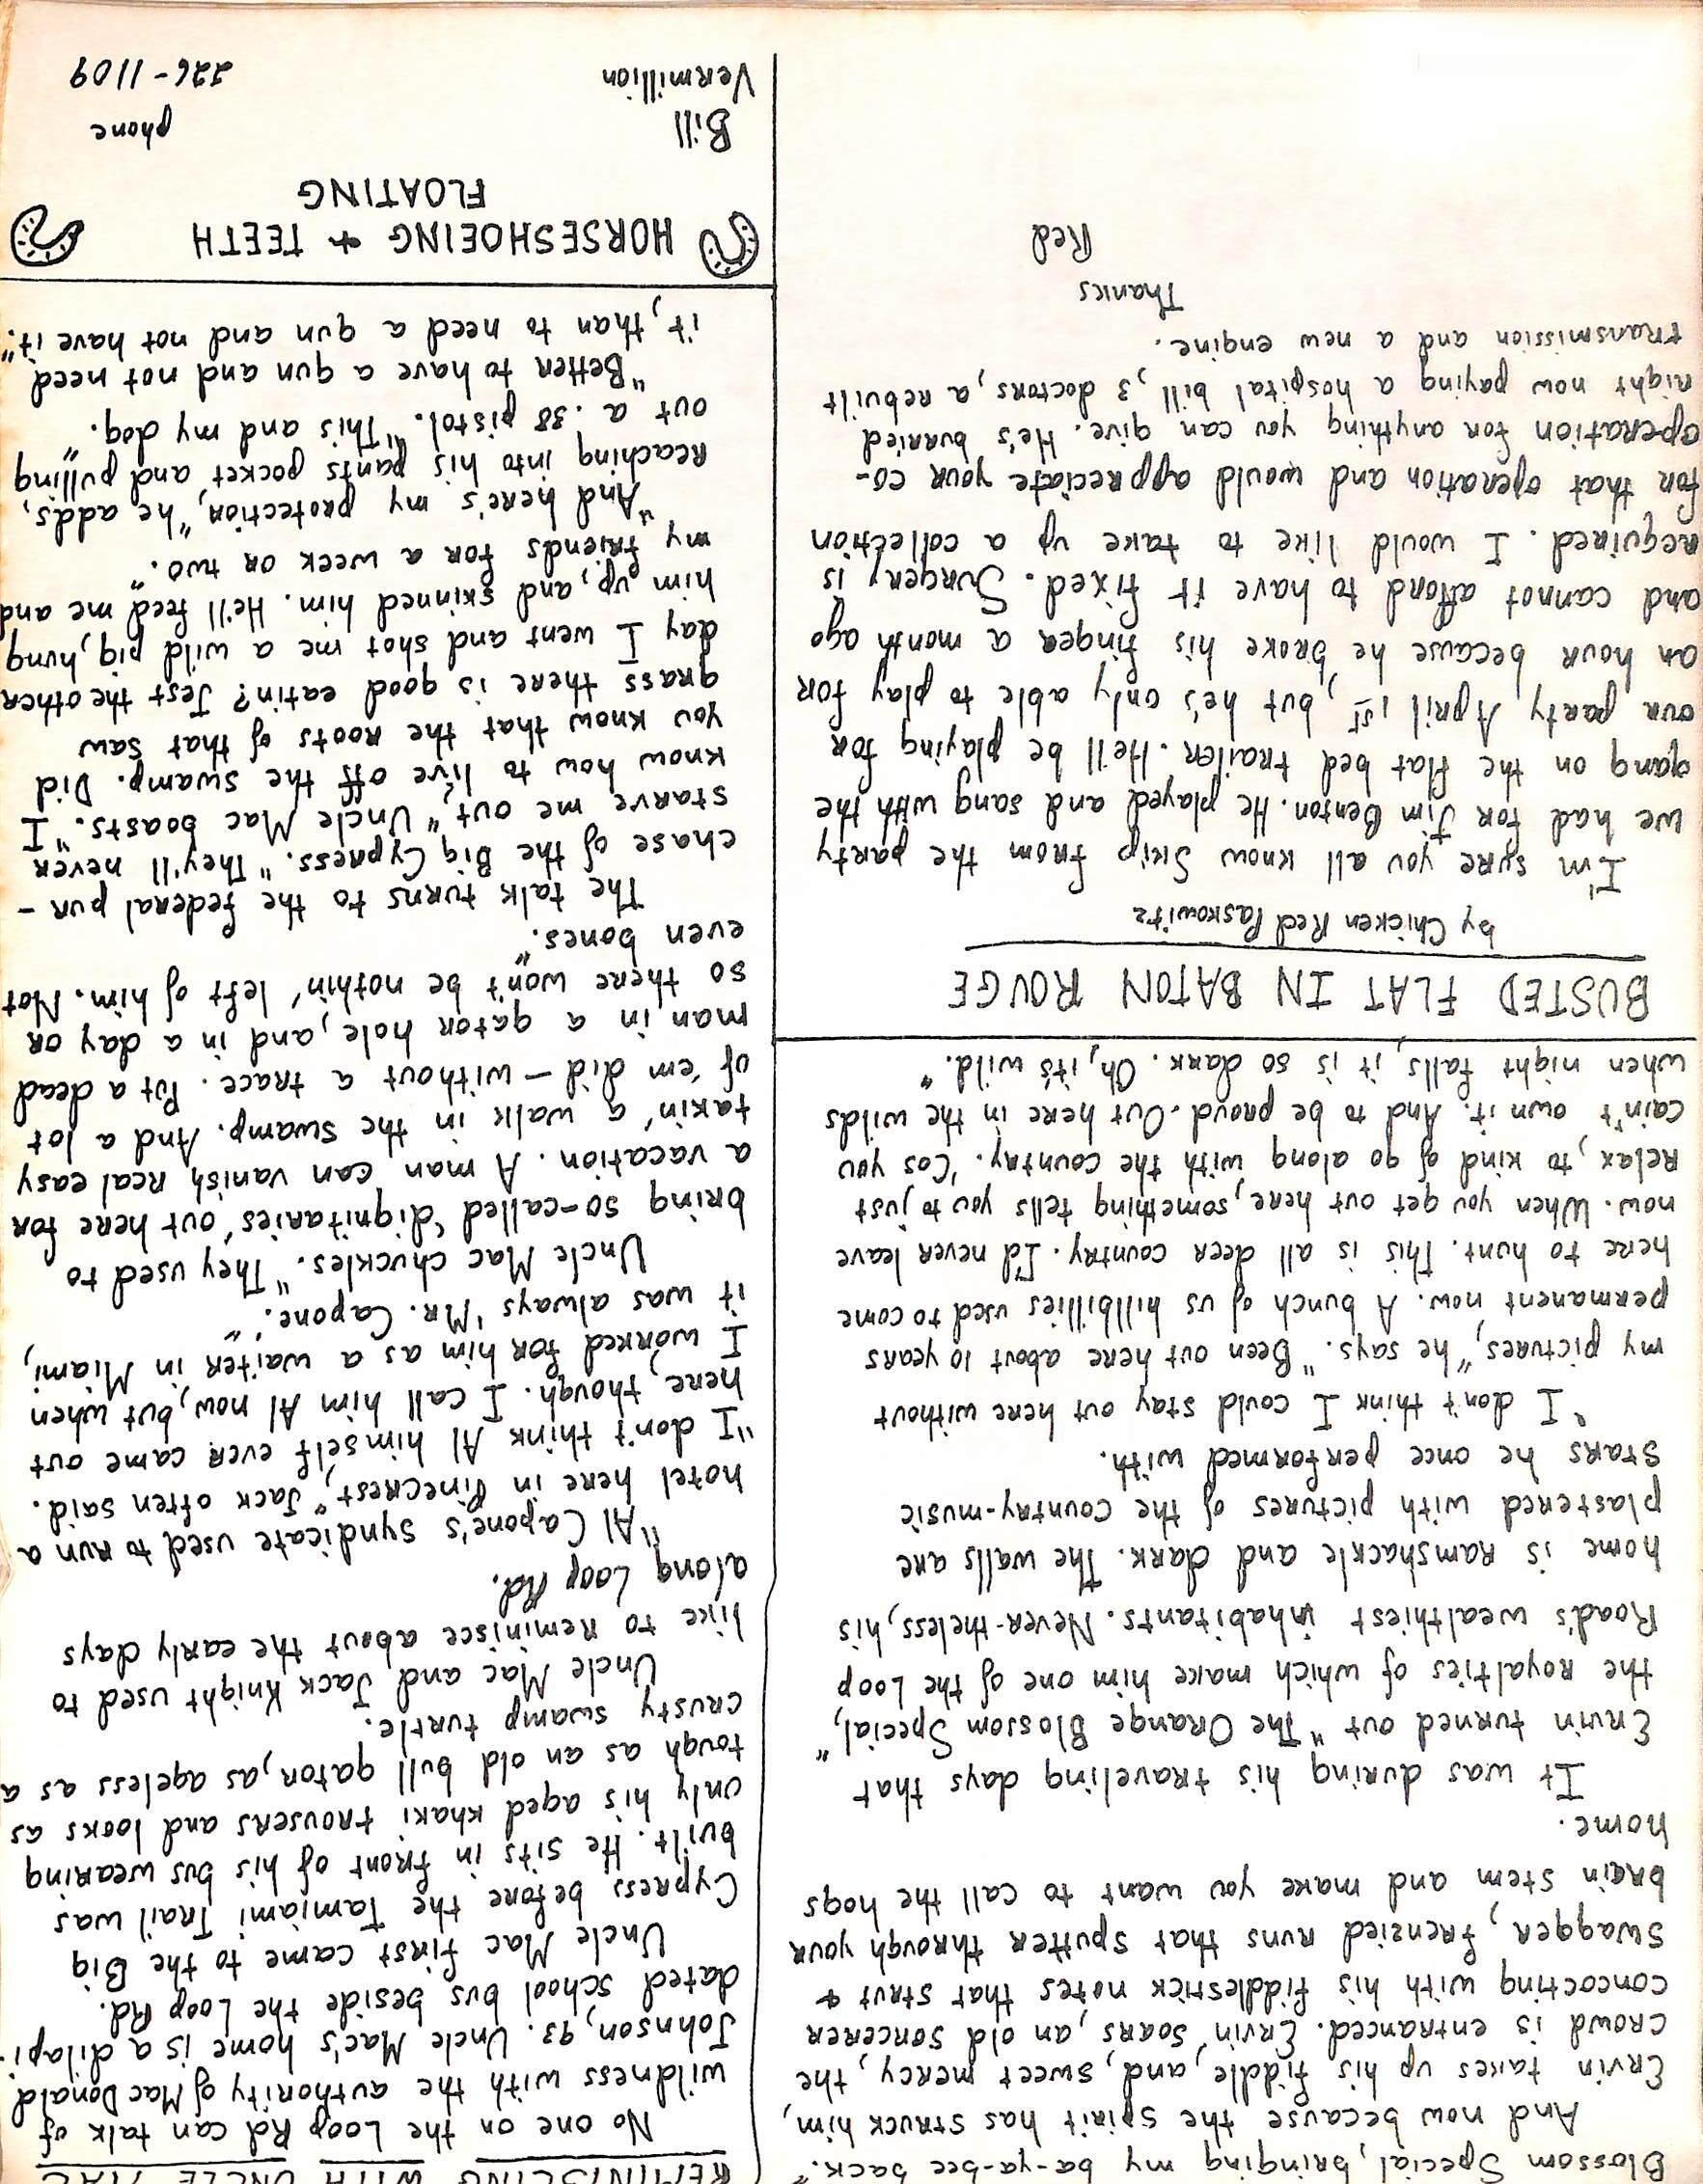 Blossom Special, bringing my ba-ya-bee back."
And now because the spirit has struck him,
Ervin takes up his fiddle, and, sweet mercy, the
crowd is entranced. Ervin soars, an old sorcerer
concocting with his fiddlestick notes that strut +
swagger, frenzied runs that sputter through your
brain stem and make you want to call the hogs
home.
It was during his traveling days that
Ervin turned out "The Orange Blossom Special,"
the royalties of which make him one of the Loop
Road's wealthiest inhabitants. Never-theless, his
home is ramshackle and dark. The walls are
plastered with pictures of the country-music
stars he once performed with.
"I don't think I could stay out here without
my pictures," he says. "Been out here about 10 years
permanent now. A bunch of us hillbillies used to come
here to hunt. This is all deer country. I'd never leave
now. When you get out here, something tells you to just
relax, to kind of go along with the country. 'Cos you
cain't own it. And to be proud. Out here in the wilds
when night falls, it is so dark. Oh, it's wild."
BUSTED FLAT IN BATON ROUGE
by Chicken Red Paskowitz
I'm sure you all know Skip from the party
we had for Jim Benton. He played and sang with the
gang on the flat bed trailer. He'll be playing for
our party, April 1st, but he's only able to play for
an hour because he broke his finger a month ago
and cannot afford to have it fixed. Surgery is
required. I would like to take up a collection
for that operation and would appreciate your co-
operation for anything you can give. He's burried
right now paying a hospital bill, 3 doctors, a rebuilt
transmission and a new engine.
Thanks
Red
REMINISCING WITH UNCLE MAC
No one on the Loop Rd can talk of
wildness with the authority of MacDonald
Johnson, 93. Uncle Mac's home is a dilapi-
dated school bus beside the Loop Rd.
Uncle Mac first came to the Big
Cypress before the Tamiami Trail was
built. He sits in front of his bus wearing
only his aged khaki trousers and looks as
tough as an old bull gator, as ageless as a
crusty swamp turtle.
Uncle Mac and Jack Knight used to
like to reminisce about the early days
along Loop Rd.
"Al Capone's Syndicate used to run a
hotel here in Pinecrest," Jack often said.
"I don't think Al himself ever came out
here, though. I call him Al now, but when
I worked for him as a waiter in Miami,
it was always 'Mr. Capone'."
Uncle Mac chuckles. "They used to
bring so-called 'dignitaries' out here for
a vacation. A man can vanish real easy
takin' a walk in the swamp. And a lot
of 'em did - without a trace. Put a dead
man in a gator hole, and in a day or
so there won't be nothin' left of him. Not
even bones."
The talk turns to the federal pur-
chase of the Big Cypress. "They'll never
starve me out," Uncle Mac boasts. "I
know how to live off the swamp. Did
you know that the roots of that saw
grass there is good eatin? Jest the other
day I went and shot me a wild pig, hung
him up, and skinned him. He'll feed me and
my friends for a week or two."
"And here's my protection," he adds,
reaching into his pants pocket and pulling
out a .38 pistol. "This and my dog."
"Better to have a gun and not need
it, than to need a gun and not have it."
HORSESHOEING + TEETH
FLOATING
Bill phone
Vermillion 226-1109